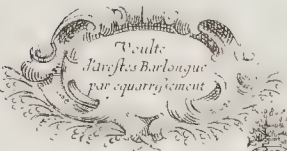 Voulte
d'arestes Barlongue
par equarrissement